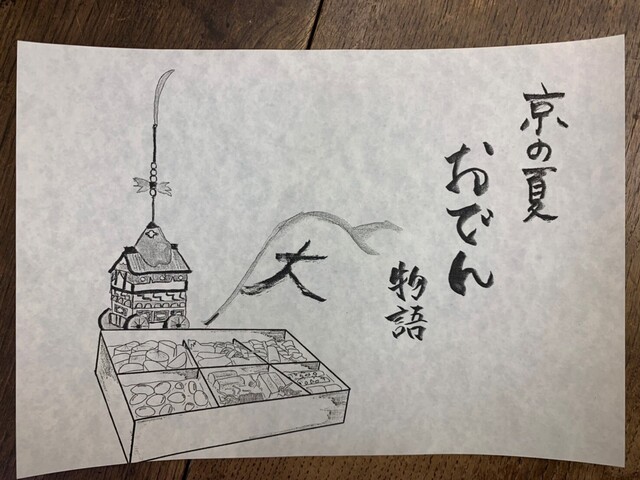 京の夏
おでん
物語
大